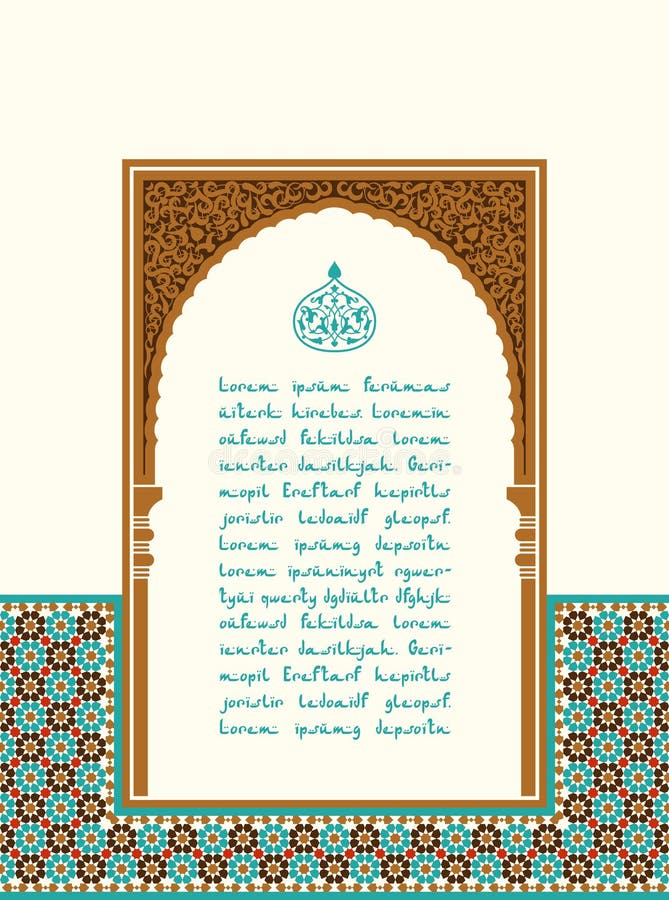 Lorem ipsum ferumas
uiterk hirebes. Loremin
oufewsd fekildsa lorem
ienrter dasilkjah. Geri-
mopil Ereftarf hepirtls
jorislir ledoaidf gleopsf.
Lorem ipsumg depsoitn
lorem ipsuninyrt rgwer-
tyui qwerty dgdiultr dfghjk
oufewsd fekildsa lorem
ienrter dasilkjah. Geri-
mopil Ereftarf hepirtls
jorislir ledoaidf gleopsf.
Lorem ipsumg depsoitn